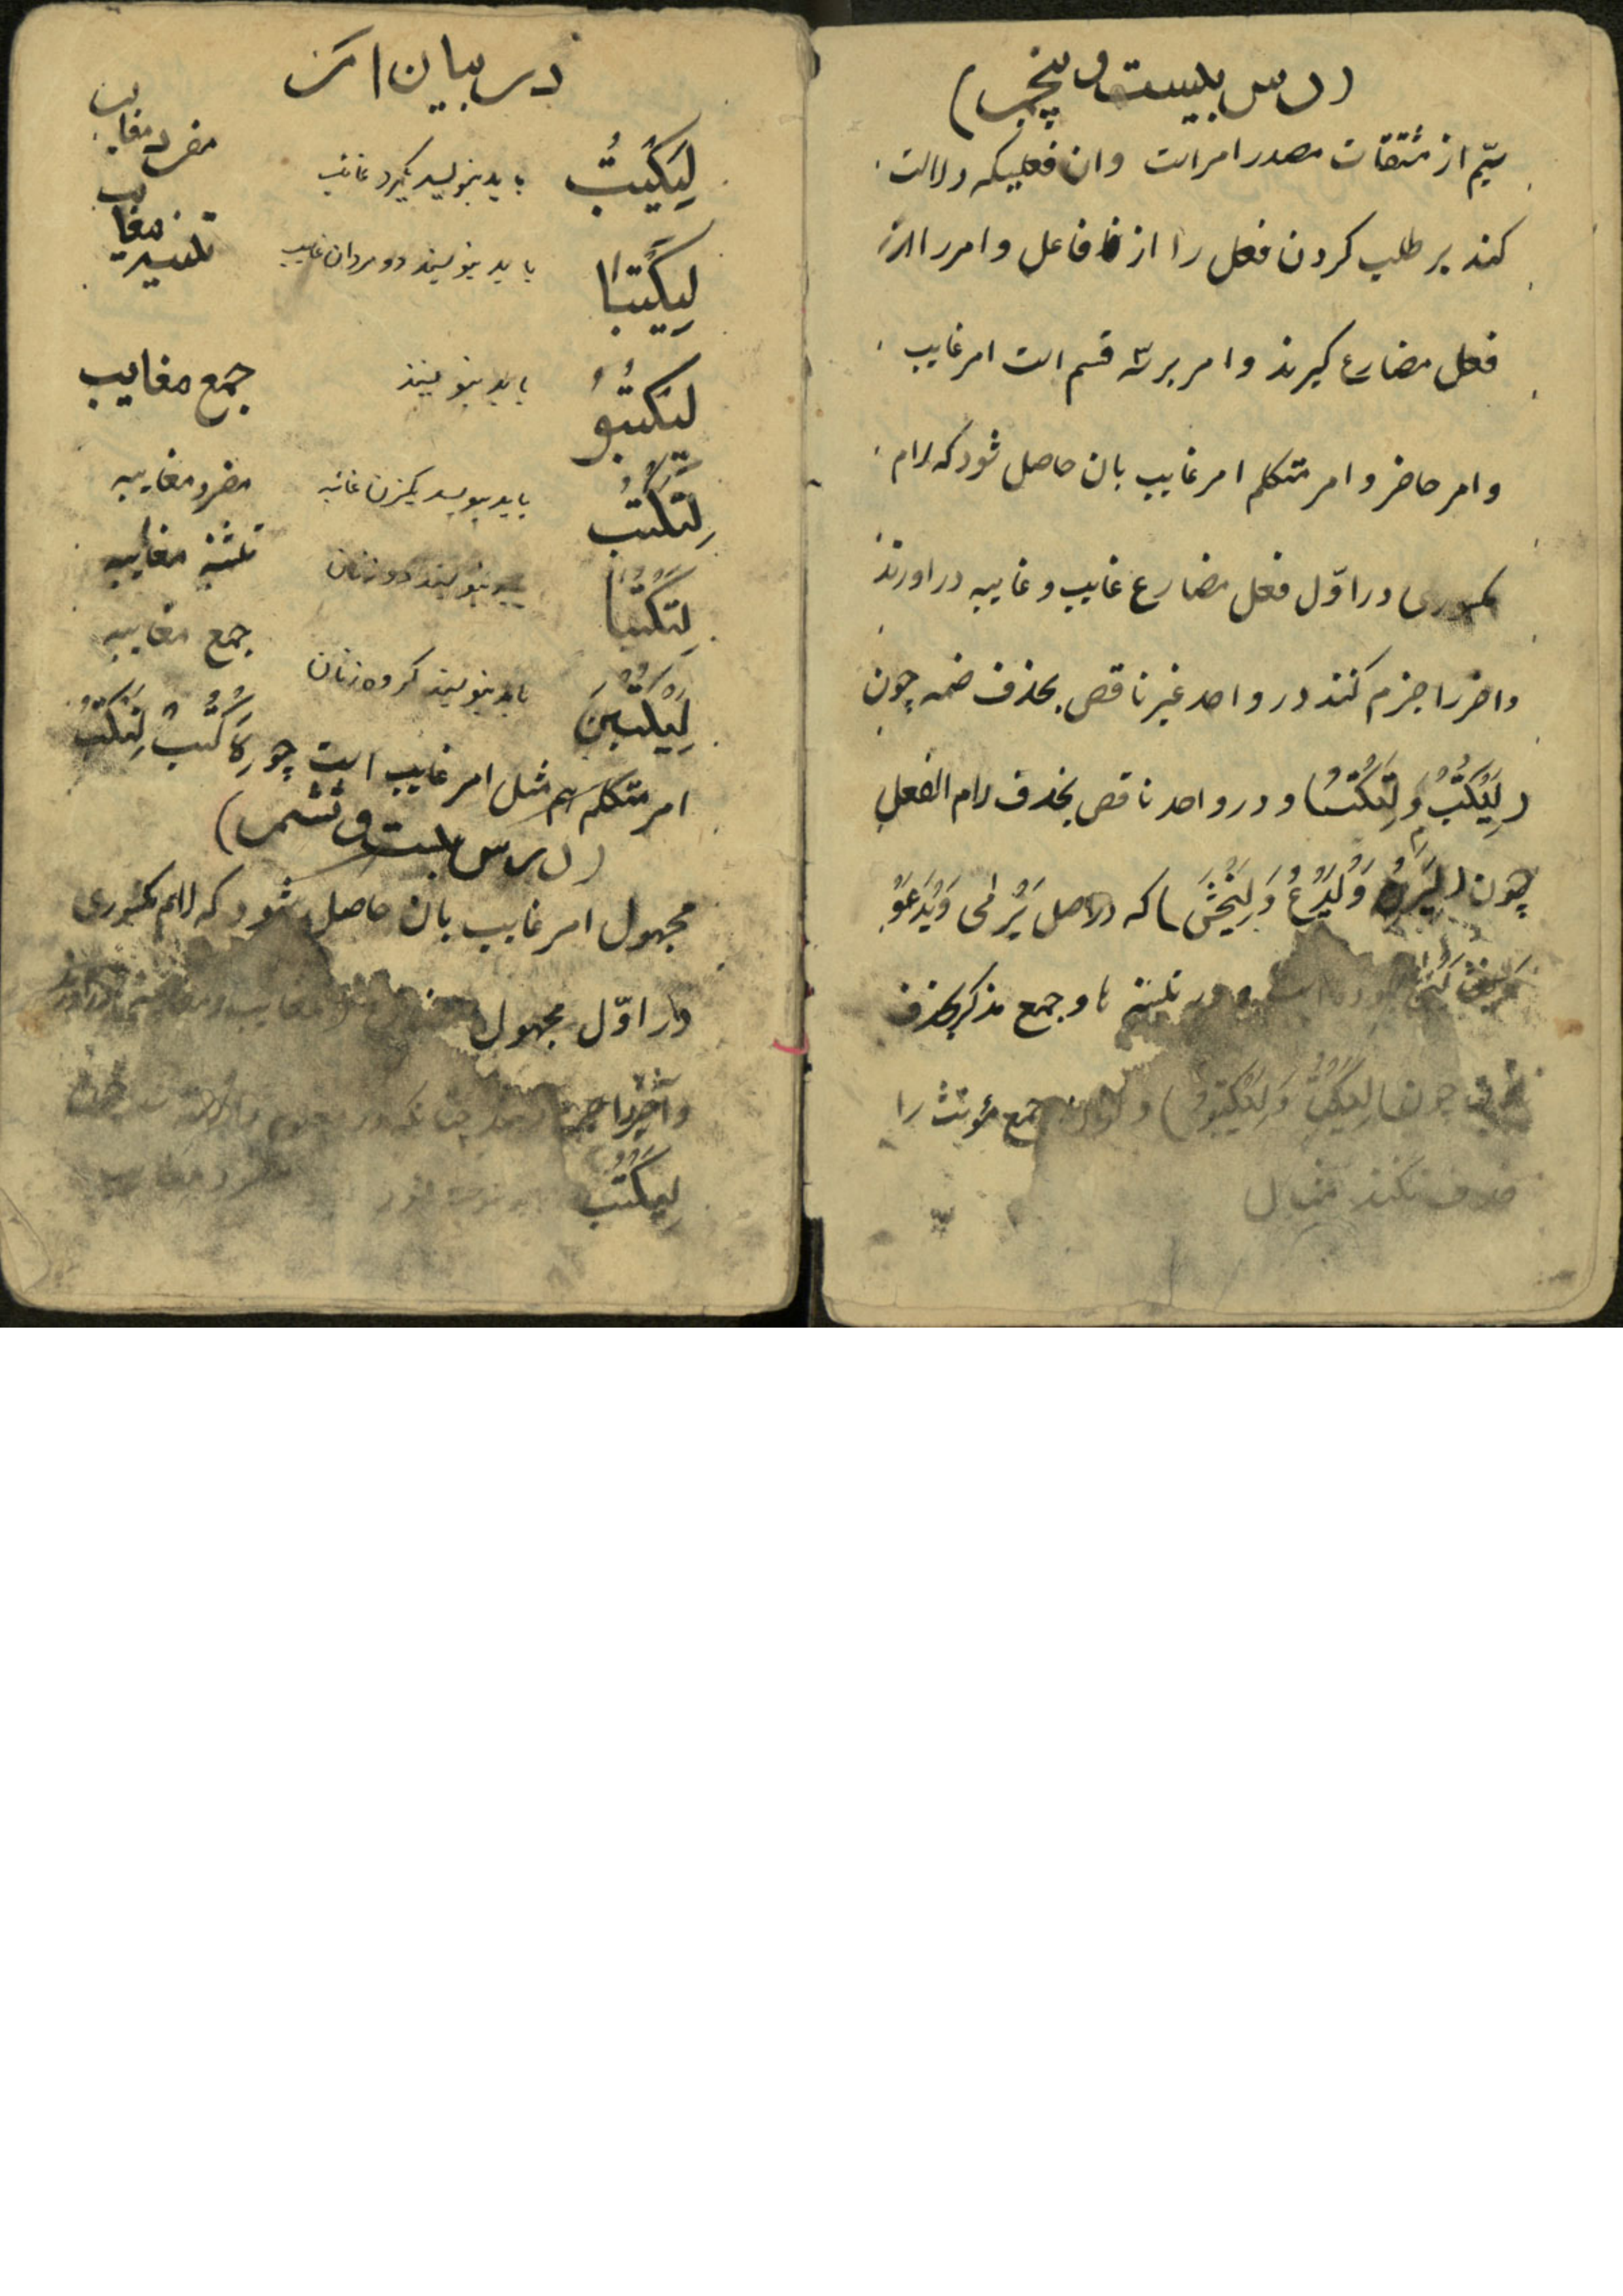 (درس بیست و پنجم)
سیّم از مشتقات مصدر امر است و ان فعلیکه دلالت
کند بر طلب کردن فعل را از فاعل و امر را از
فعل مضارع گیرند و امر بر سه قسم است امر غایب
و امر حاضر و امر متکلم امر غایب بان حاصل شود که لام
مکسوری در اوّل فعل مضارع غایب و غایبه در اورند
و اخر را جزم کنند در واحد غیر ناقص بحذف ضمه چون
(لِیَکْتُبْ وَ لِتَکْتُبْ) و در واحد ناقص بحذف لام الفعل
چون (لِیَرْمِ وَ لْیَدْعُ وَ لِیَخْشَ) که در اصل یَرْمی وَ یَدْعُوُ
در تثنیه ها و جمع مذکر بحذف
چون (لِیَکْتُبا وَ لِیَکْتُبُوا) و نون جمع مؤنث را
حذف نکنند مثال
در بیان امر
لِیَکْتُبْ باید بنویسد یکمرد غائب مفرد مغایب
لِیَکْتُبَا باید بنویسند دو مردان غایب تثنیه مغایب
لیَکْتُبُو باید بنویسند جمع مغایب
لِتَکْتُبْ باید بنویسد یکزن غائبه مفرد مغایبه
لِتَکْتُبَا بنویسند دو زنان تثنیه مغایبه
لِیَکْتُبْنَ باید بنویسند گروه زنان جمع مغایبه
امر متکلم هم مثل امر غایب است چو لِاَکْتُبْ لِنَکْتُبْ
(درس بیست و ششم)
مجهول امر غایب بان حاصل شود که لام مکسوری
در اوّل مجهول
و آخر را جزم
لِیُکْتَبْ